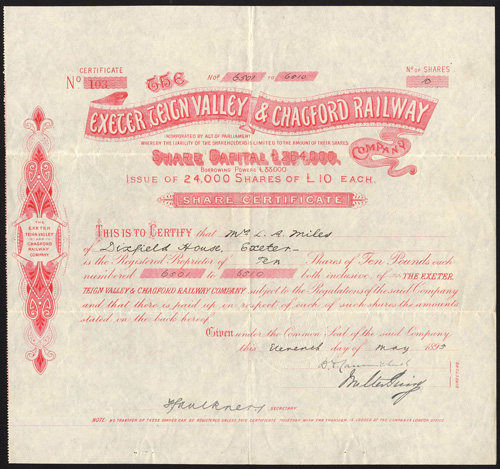 CERTIFICATE
Nº 103
Nos 6501 to 6510
Nº OF SHARES
10
THE
EXETER, TEIGN VALLEY & CHAGFORD RAILWAY
COMPANY
INCORPORATED BY ACT OF PARLIAMENT
WHEREBY THE LIABILITY OF THE SHAREHOLDERS IS LIMITED TO THE AMOUNT OF THEIR SHARES
SHARE CAPITAL £264,000,
BORROWING POWERS £88000
ISSUE OF 24,000 SHARES OF £10 EACH.
SHARE CERTIFICATE
THE EXETER TEIGN VALLEY & CHAGFORD RAILWAY COMPANY
THIS IS TO CERTIFY that Mr L. C. Miles
of Dixfield House, Exeter
is the Registered Proprietor of Ten Shares of Ten Pounds each
numbered 6501 to 6510 both inclusive of THE EXETER
TEIGN VALLEY & CHAGFORD RAILWAY COMPANY subject to the Regulations of the said Company
and that there is paid up in respect of each of such shares the amounts
stated on the back hereof.
Given under the Common Seal of the said Company
this Eleventh day of May 1895
DIRECTORS
Faulkner SECRETARY
NOTE: NO TRANSFER OF THESE SHARES CAN BE REGISTERED UNLESS THIS CERTIFICATE TOGETHER WITH THE TRANSFER IS LODGED AT THE COMPANY'S LONDON OFFICE